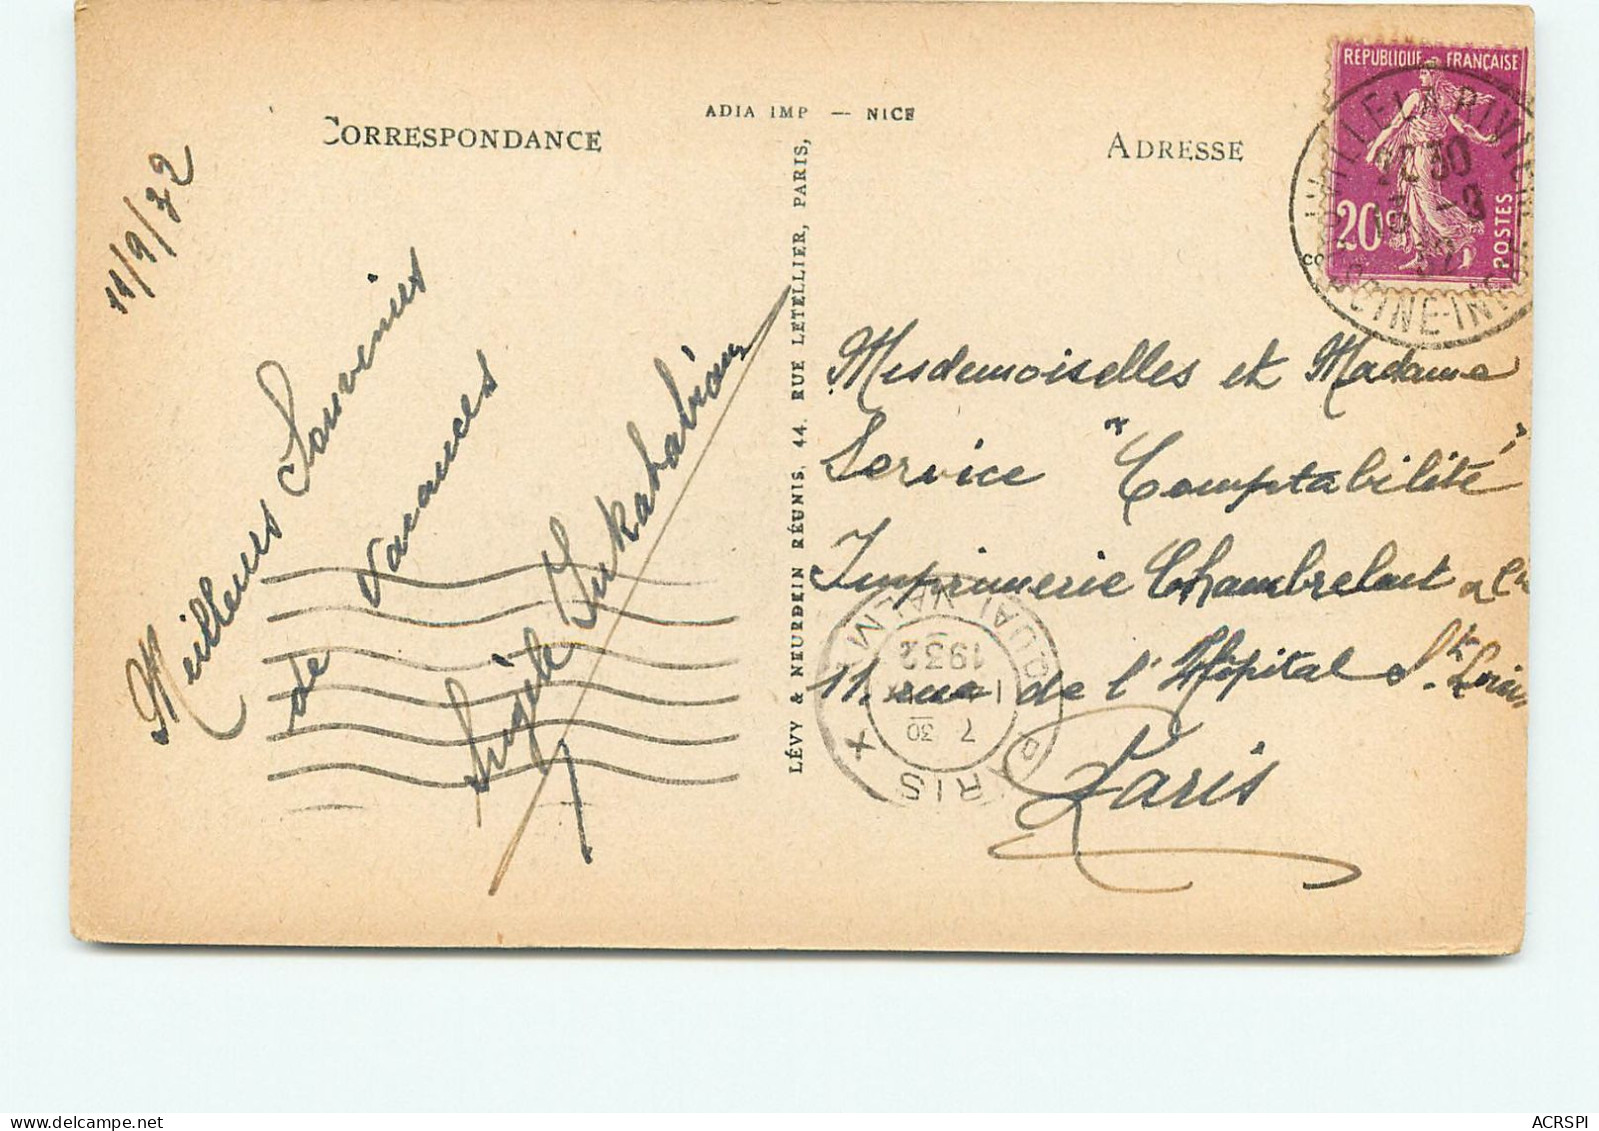 CORRESPONDANCE
ADIA IMP — NICE
ADRESSE
RÉPUBLIQUE FRANÇAISE
20c
POSTES
20 30
13 -9
32
SEINE-INF
11/9/32
Meilleurs Souvenirs
de vacances
LÉVY & NEURDEIN RÉUNIS, 44. RUE LETELLIER, PARIS,
Mesdemoiselles et Madame
Service "Comptabilité"
Imprimerie Chambrelent & Cie
11, rue de l'Hôpital St Louis
Paris
QUAI VALM
1932
7 30
ACRSPI